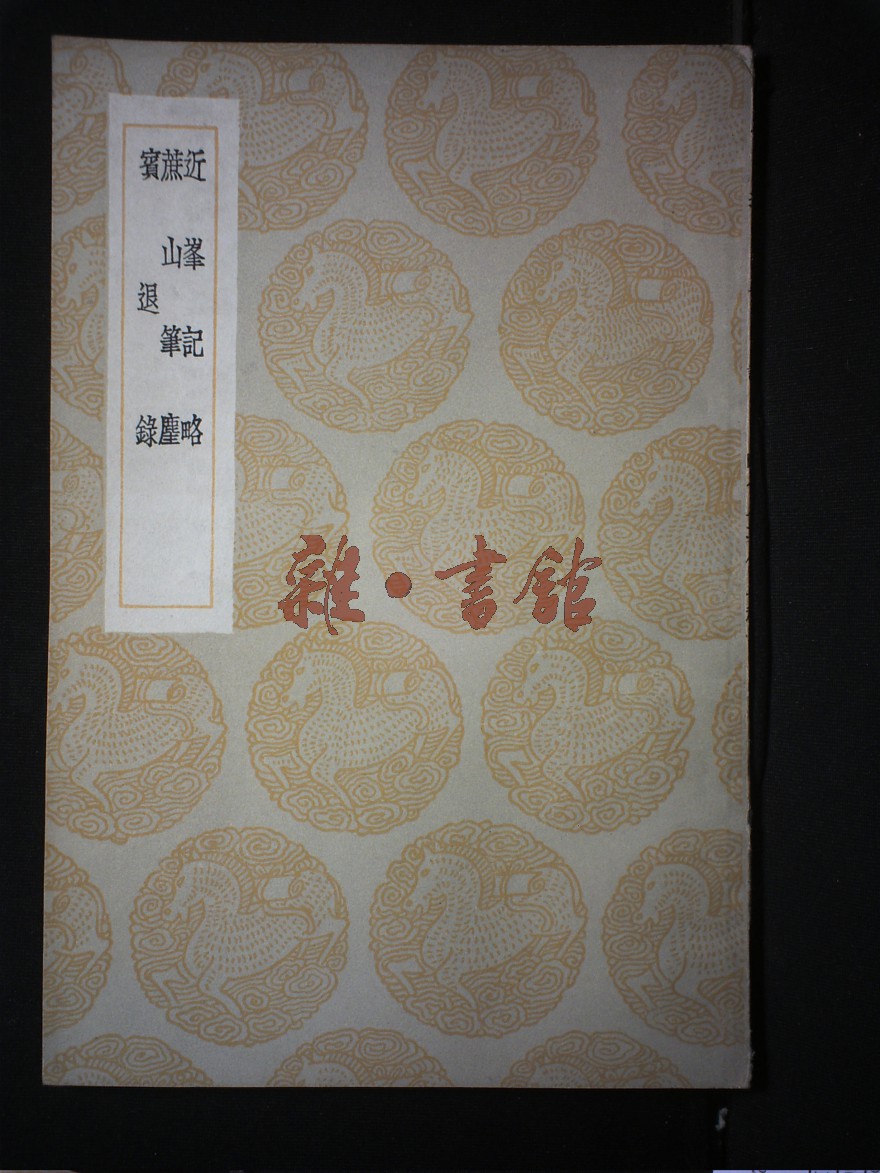 近峯記略
蔗山筆麈
賓退錄
雜·書館